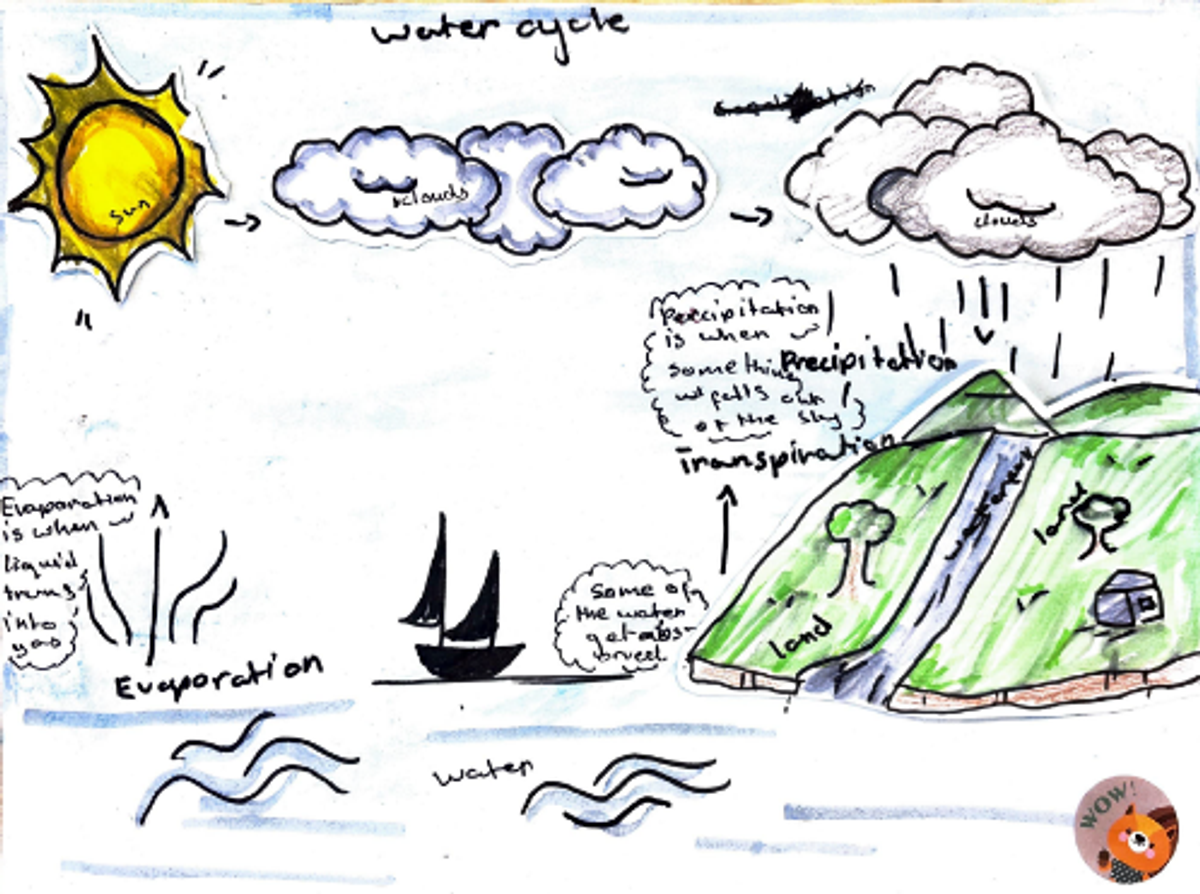 water cycle
sun
clouds
clouds
Precipitation
is when
something
falls out
of the sky
Precipitation
Transpiration
Evaporation
is when
liquid
turns
into
gas
Some of
the water
get abs-
orved
Evaporation
land
land
water
WOW!